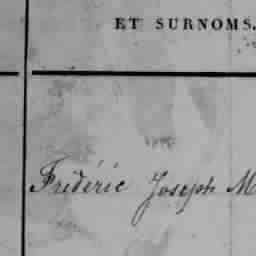 ET SURNOMS.
Frédéric Joseph M